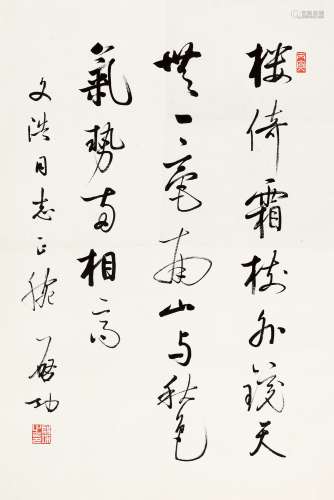 樓倚霜樹外鏡天
無一毫南山與秋色
氣勢兩相高
文浩同志正腕 啟功